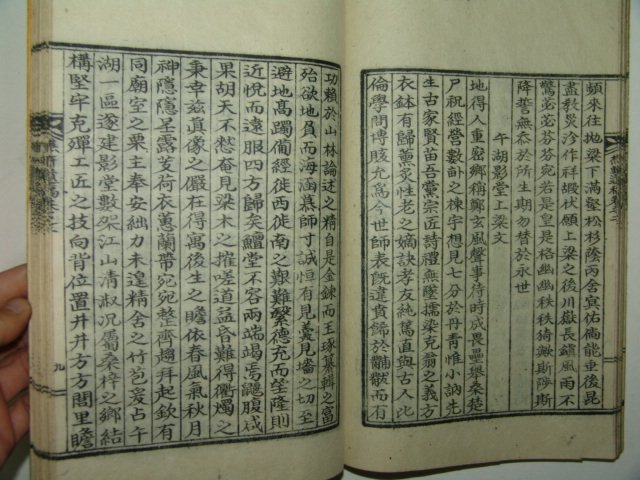 頻來往抛梁下滿壑松杉蔭丙舍冥佑倘能垂後昆
盡教災沴作祥嘏伏願上梁之後川嶽長鎭風雨不
驚苾苾芬芬宛若是皇是格幽幽秩秩猗歟斯陟斯
降誓無忝於所生期勿替於永世
午湖影堂上梁文
地得人重密鄕稱鄭玄風聲事待時成畏壘擧桑楚
尸祝經營數計之棟宇想見七分於丹靑惟小訥先
生古家賢苗吾黨宗匠詩禮無墜擩染克翁之義方
衣鉢有歸薰炙性老之嫡訣孝友純篤直與古人比
倫學問博晐允爲今世師表旣違賁歸於黼黻而有
功賴於山林論述之精自是金鍊而玉琢纂輯之富
殆欲地負而海涵慕師寸誠恒有見羹見墻之切至
避地高躅備經徙西徙南之艱難繄德充而望隆則
近悅而遠服四方歸矣鱣堂不容兩端竭焉鼴腹咸
果胡天不憖奄見梁木之摧嗟道益昏難得衢燭之
秉幸玆眞像之儼在得寓後生之瞻依春風氣秋月
神隱隱星露芰荷衣蕙蘭帶宛宛整齊趨拜起欽有
同廟室之栗主奉安絀力未遑精舍之竹苞爰占午
湖一區遂建影堂數架江山淸淑況屬桑梓之鄕結
構堅牢克殫工匠之技向背位置井井方方閭里瞻
九